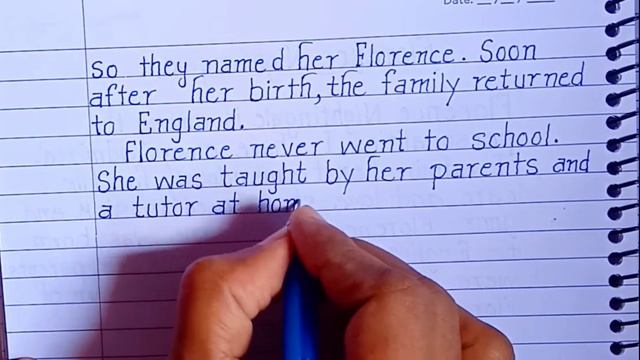 Date: __/__/____
so they named her Florence. Soon
after her birth, the family returned
to England.
Florence never went to school.
She was taught by her parents and
a tutor at hom